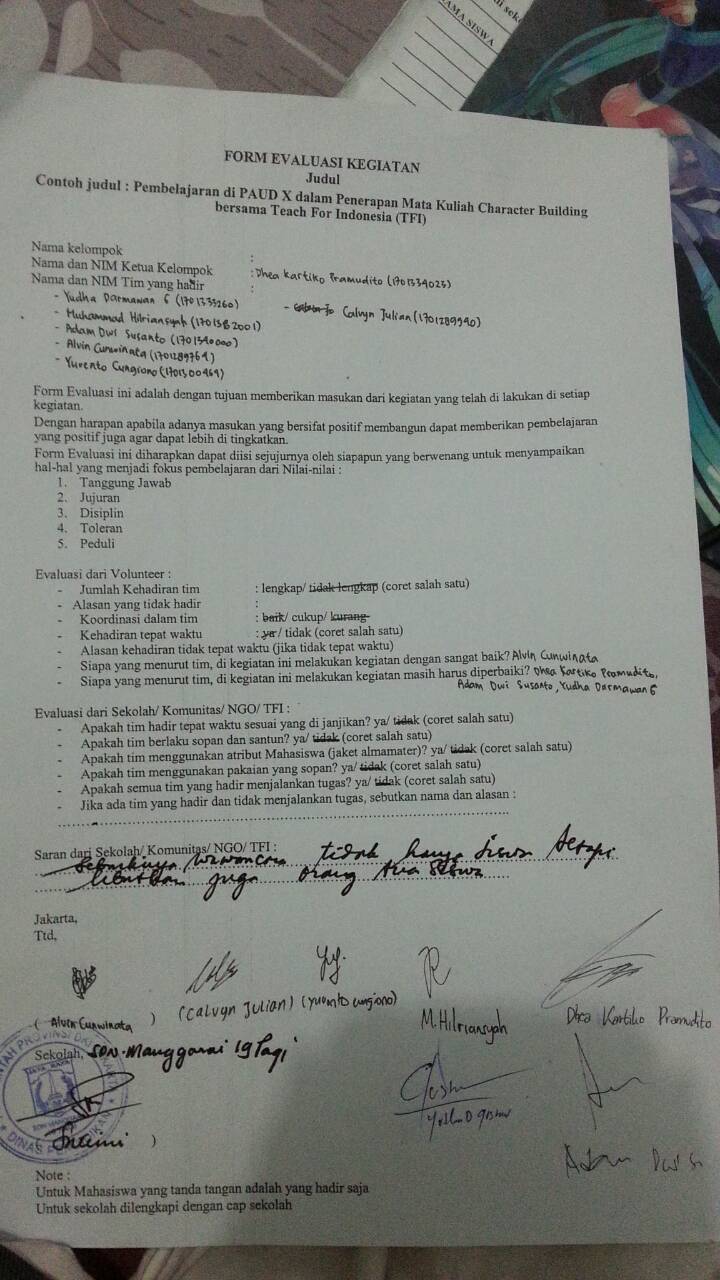 AMA SISWA
FORM EVALUASI KEGIATAN
Judul
Contoh judul : Pembelajaran di PAUD X dalam Penerapan Mata Kuliah Character Building
bersama Teach For Indonesia (TFI)
Nama kelompok :
Nama dan NIM Ketua Kelompok : Dhea Kartiko Pramudito (1701334025)
Nama dan NIM Tim yang hadir :
- Yudha Darmawan G (1701333260)
- Calvyn Julian (1701289940)
- Muhammad Hilriansyah (1701582001)
- Adam Dwi Susanto (1701340000)
- Alvin Cunwinata (1701289764)
- Yurento Cungiono (1701300464)
Form Evaluasi ini adalah dengan tujuan memberikan masukan dari kegiatan yang telah di lakukan di setiap
kegiatan.
Dengan harapan apabila adanya masukan yang bersifat positif membangun dapat memberikan pembelajaran
yang positif juga agar dapat lebih di tingkatkan.
Form Evaluasi ini diharapkan dapat diisi sejujurnya oleh siapapun yang berwenang untuk menyampaikan
hal-hal yang menjadi fokus pembelajaran dari Nilai-nilai :
1. Tanggung Jawab
2. Jujuran
3. Disiplin
4. Toleran
5. Peduli
Evaluasi dari Volunteer :
- Jumlah Kehadiran tim : lengkap/ tidak lengkap (coret salah satu)
- Alasan yang tidak hadir :
- Koordinasi dalam tim : baik/ cukup/ kurang
- Kehadiran tepat waktu : ya / tidak (coret salah satu)
- Alasan kehadiran tidak tepat waktu (jika tidak tepat waktu)
- Siapa yang menurut tim, di kegiatan ini melakukan kegiatan dengan sangat baik? Alvin Cunwinata
- Siapa yang menurut tim, di kegiatan ini melakukan kegiatan masih harus diperbaiki? Dhea Kartiko Pramudito,
Adam Dwi Susanto, Yudha Darmawan G
Evaluasi dari Sekolah/ Komunitas/ NGO/ TFI :
- Apakah tim hadir tepat waktu sesuai yang di janjikan? ya/ tidak (coret salah satu)
- Apakah tim berlaku sopan dan santun? ya/ tidak (coret salah satu)
- Apakah tim menggunakan atribut Mahasiswa (jaket almamater)? ya/ tidak (coret salah satu)
- Apakah tim menggunakan pakaian yang sopan? ya/ tidak (coret salah satu)
- Apakah semua tim yang hadir menjalankan tugas? ya/ tidak (coret salah satu)
- Jika ada tim yang hadir dan tidak menjalankan tugas, sebutkan nama dan alasan :
Saran dari Sekolah/ Komunitas/ NGO/ TFI :
Sebaiknya wawancara tidak hanya siswa tetapi
libatkan juga orang tua siswa
Jakarta,
Ttd,
( Alvin Cunwinata ) (Calvyn Julian) (Yurento Cungiono) M. Hilriansyah Dhea Kartiko Pramudito
Sekolah, SDN. Manggarai 19 Pagi
Adam Dwi S
Note :
Untuk Mahasiswa yang tanda tangan adalah yang hadir saja
Untuk sekolah dilengkapi dengan cap sekolah